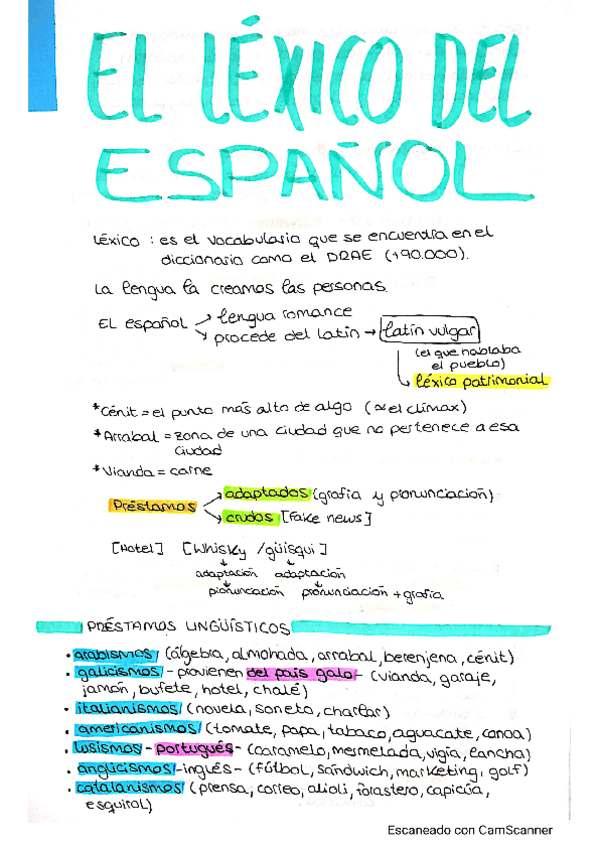 EL LÉXICO DEL
ESPAÑOL
Léxico : es el vocabulario que se encuentra en el
diccionario como el DRAE (+90.000).
La lengua la creamos las personas.
EL español → lengua romance
→ procede del latín → latín vulgar
(el que hablaba
el pueblo)
→ léxico patrimonial
*Cénit = el punto más alto de algo (≃ el clímax)
*Arrabal = zona de una ciudad que no pertenece a esa
ciudad
*Vianda = carne
Préstamos → adaptados (grafía y pronunciación)
→ crudos [Fake news]
[Hotel] [Whisky / güisqui]
adaptación adaptación
pronunciación pronunciación + grafía
PRÉSTAMOS LINGÜÍSTICOS
• arabismos (álgebra, almohada, arrabal, berenjena, cénit)
• galicismos - provienen del país galo - (vianda, garaje,
jamón, bufete, hotel, chalé)
• italianismos (novela, soneto, charlar)
• americanismos (tomate, papa, tabaco, aguacate, canoa)
• lusismos - portugués - (caramelo, mermelada, vigía, lancha)
• anglicismos - inglés - (fútbol, sándwich, marketing, golf)
• catalanismos (prensa, correo, alioli, forastero, capicúa,
esquirol)
Escaneado con CamScanner